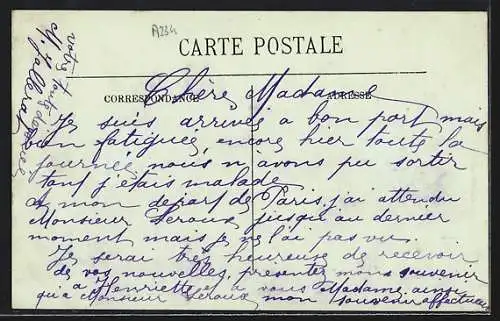 A234
CARTE POSTALE
CORRESPONDANCE
ADRESSE
Chère Madame
Je suis arrivée a bon port mais
bien fatiguée, encore hier toute la
journée, nous n'avons pu sortir
tant j'étais malade
a mon depart de Paris j'ai attendu
Monsieur Leroux jusqu'au dernier
moment mais je ne l'ai pas vu.
Je serai très heureuse de recevoir
de vos nouvelles, presenter mons souvenir
a Henriette et a vous Madame ainsi
qu'a Monsieur Leroux mon souvenir affectueux
votre toute dévouée